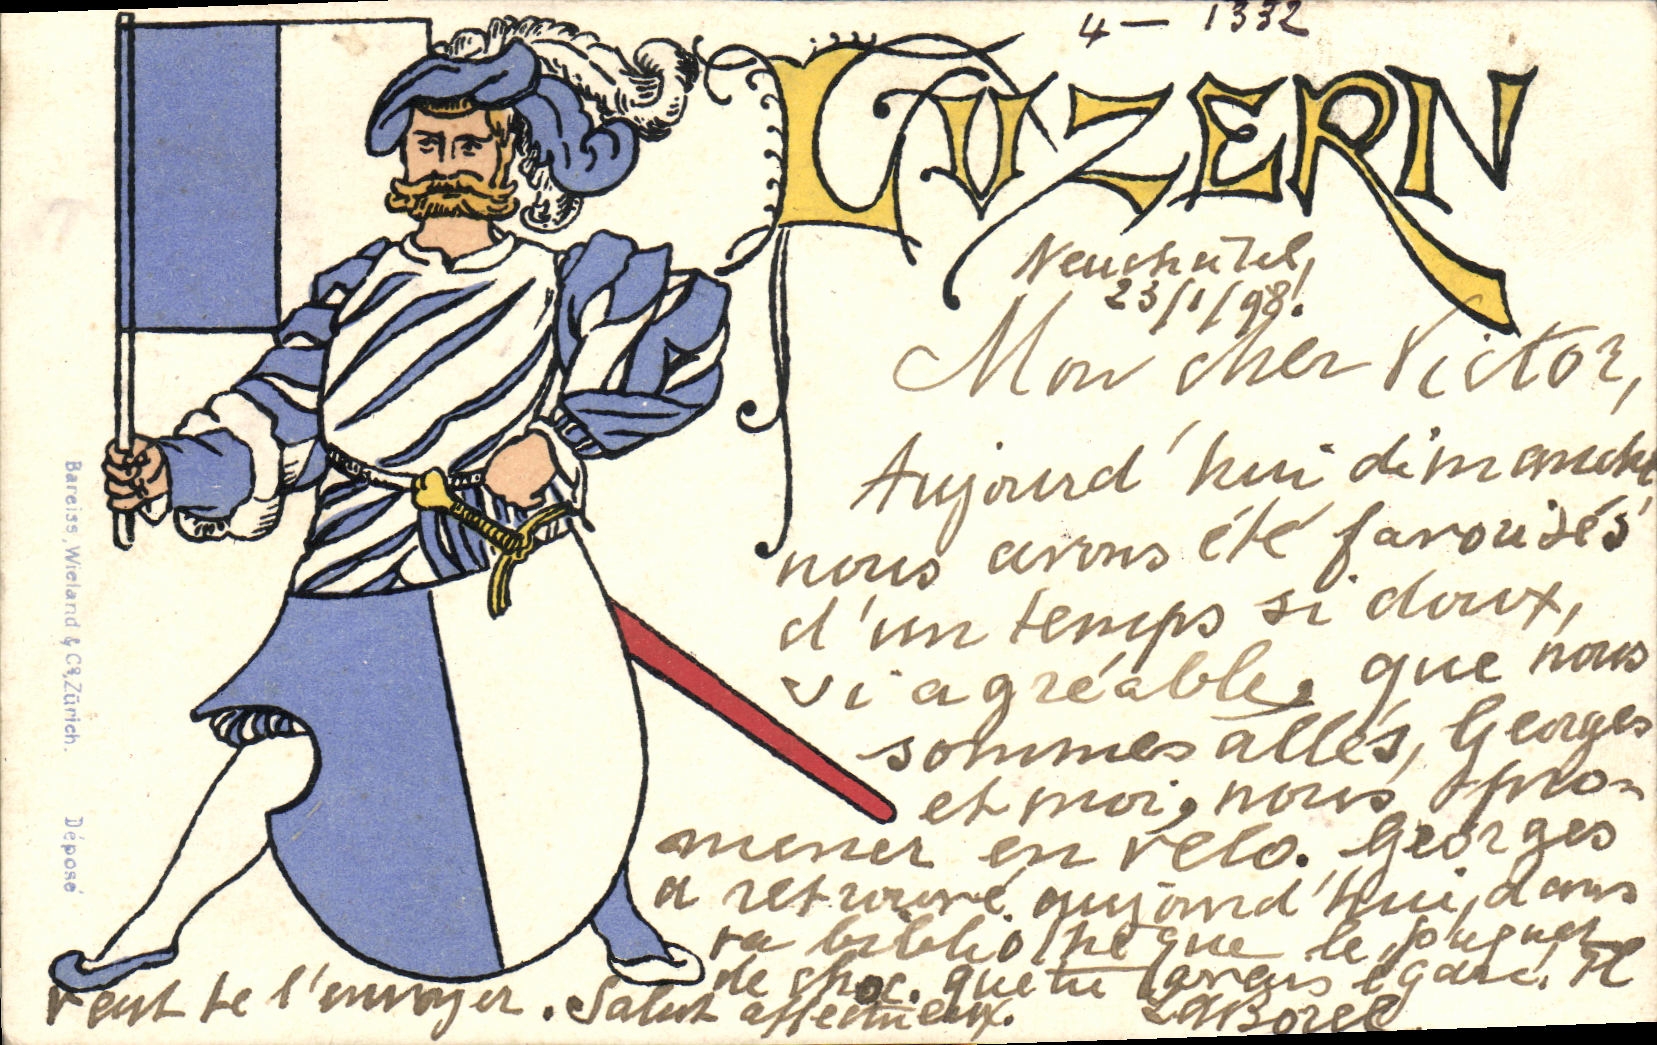 4 — 1332
LUZERN
Neuchâtel,
23/1/98.
Mon cher Victor,
Aujourd'hui dimanche
nous avons été favorisés
d'un temps si doux,
si agréable, que nous
sommes allés, Georges
et moi, nous pro-
mener en vélo. Georges
a retrouvé aujourd'hui, dans
sa bibliothèque le
de choc. que tu avais égaré. Il
veut te l'envoyer. Salut affectueux.
Borel
Bareiss, Wieland & Cº, Zürich. Déposé